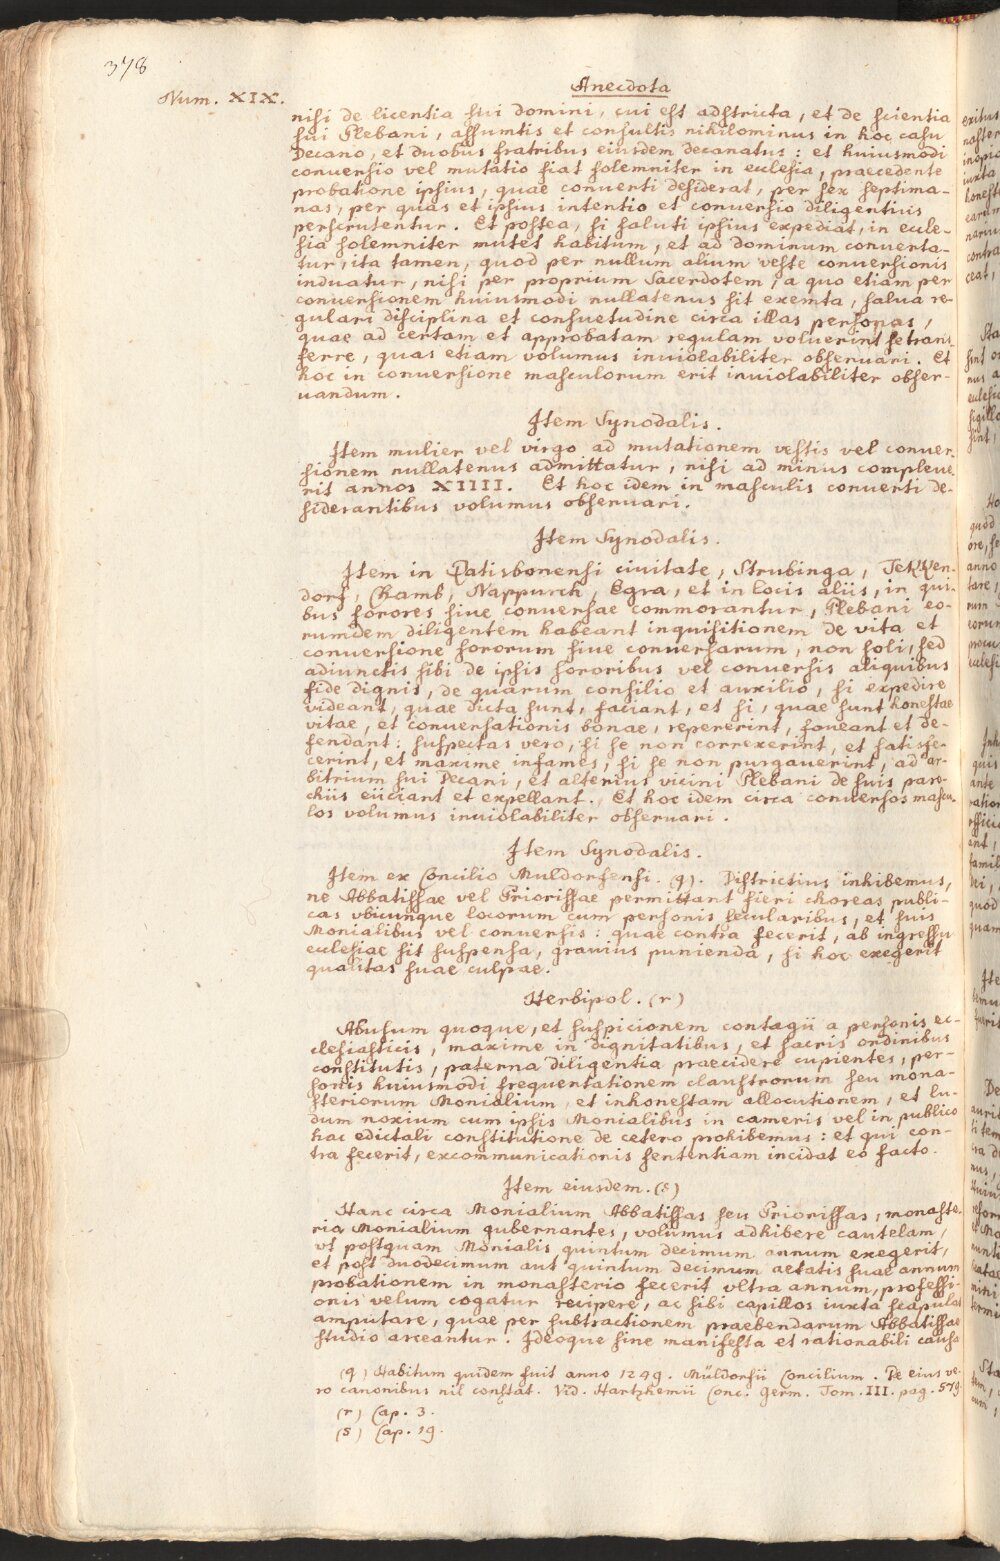 378
Anecdota
Num. XIX.
nisi de licentia sui domini, cui est adstricta, et de scientia
sui Plebani, assumtis et consultis nihilominus in hoc casu
Decano, et duobus fratribus eiusdem decanatus: et huiusmodi
conuersio vel mutatio fiat solemniter in ecclesia, praecedente
probatione ipsius, quae conuerti desiderat, per sex septima-
nas, per quas et ipsius intentio et conuersio diligentius
perscrutentur. Et postea, si saluti ipsius expediat, in eccle-
sia solemniter mutet habitum, et ad dominum conuerta-
tur, ita tamen, quod per nullum alium veste conuersionis
induatur, nisi per proprium Sacerdotem, a quo etiam per
conuersionem huiusmodi nullatenus sit exemta, salua re-
gulari disciplina et consuetudine circa illas personas,
quae ad certam et approbatam regulam voluerint se trans-
ferre, quas etiam volumus inuiolabiliter obseruari. Et
hoc in conuersione masculorum erit inuiolabiliter obser-
uandum.
Item Synodalis.
Item mulier vel virgo ad mutationem vestis vel conuer-
sionem nullatenus admittatur, nisi ad minus compleue-
rit annos XIIII. Et hoc idem in masculis conuerti de-
siderantibus volumus obseruari.
Item Synodalis.
Item in Ratisbonensi ciuitate, Strubinga, TeKKen-
dorf, Chamb, Nappurch, Egra, et in locis aliis, in qui-
bus sorores siue conuersae commorantur, Plebani eo-
rumdem diligentem habeant inquisitionem de vita et
conuersione sororum siue conuersarum, non soli, sed
adiunctis sibi de ipsis sororibus vel conuersis aliquibus
fide dignis, de quarum consilio et auxilio, si expedire
videant, quae dicta sunt, faciant, et si, quae sunt honestae
vitae, et conuersationis bonae, repererint, foueant et de-
fendant: suspectas vero, si se non correxerint, et satisfe-
cerint, et maxime infames, si se non purgauerint, ad ar-
bitrium sui Decani, et alterius vicini Plebani de suis paro-
chiis eiiciant et expellant. Et hoc idem circa conuersos mascu-
los volumus inuiolabiliter obseruari.
Item Synodalis.
Item ex Concilio Muldorfensi. (q). Districtius inhibemus,
ne Abbatissae vel Priorissae permittant fieri choreas publi-
cas vbicunque locorum cum personis secularibus, et suis
Monialibus vel conuersis: quae contra fecerit, ab ingressu
ecclesiae sit suspensa, grauius punienda, si hoc exegerit
qualitas suae culpae.
Herbipol. (r)
Abusum quoque, et suspicionem contagii a personis ec-
clesiasticis, maxime in dignitatibus, et sacris ordinibus
constitutis, paterna diligentia praecidere cupientes, per-
sonis huiusmodi frequentationem claustrorum seu mona-
steriorum Monialium, et inhonestam allocutionem, et lu-
dum noxium cum ipsis Monialibus in cameris vel in publico
hac edictali constitutione de cetero prohibemus: et qui con-
tra fecerit, excommunicationis sententiam incidat eo facto.
Item eiusdem. (s)
Hanc circa Monialium Abbatissas seu Priorissas, monaste-
ria Monialium gubernantes, volumus adhibere cautelam,
vt postquam Monialis quintum decimum annum exegerit,
et post duodecimum aut quintum decimum aetatis suae annum
probationem in monasterio fecerit vltra annum, professi-
onis velum cogatur recipere, ac sibi capillos iuxta scapulas
amputare, quae per subtractionem praebendarum Abbatissae
studio arceantur. Ideoque sine manifesta et rationabili causa
(q) Habitum quidem fuit anno 1249. Müldorfii Concilium. De eius ve-
ro canonibus nil constat. Vid. Hartzhemii Conc. Germ. Tom. III. pag. 579.
(r) Cap. 3.
(s) Cap. 19.